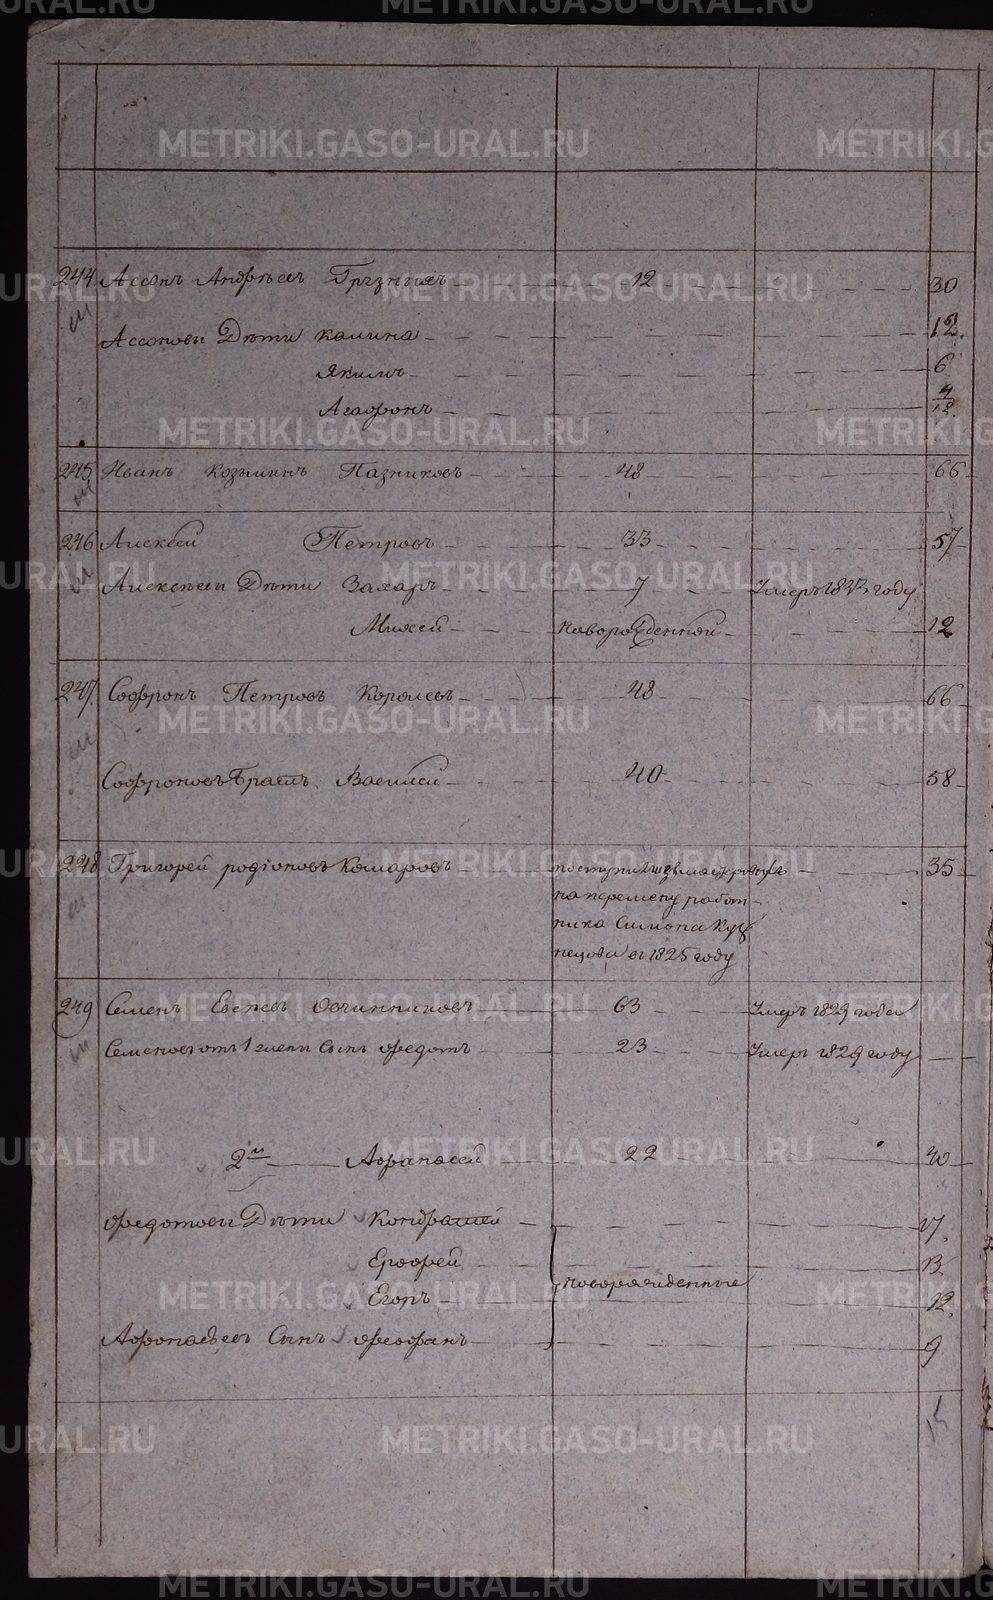 244. Ассонъ Андрѣевъ Грязныхъ 12 30
Ассоновы Дѣти Калина 12.
Якимъ 6
Агафонъ 4/12
245 Иванъ Козьминъ Пазниковъ 48 66
246 Алексѣй Петровъ 33 57
Алексѣевы Дѣти Захаръ 7 Умеръ 1823 году
Мижей Новорожденной 12
247. Софронъ Петровъ Королевъ 48 66
Софроновъ Братъ Василей 40 58
248 Григорей родіоновъ Комаровъ поступилъ 35
на перемену работ
ника Симона Куз
нецова въ 1825 году
249 Семенъ Евсѣевъ Овчинниковъ 63 Умеръ 1829 года
Семеновъ отъ 1 жены Сынъ Федотъ 23 Умеръ 1829 году
2й Афанасей 22 40
Федотовы Дѣти Кондратей 17.
Ерофей 13
новорожденные
Егоръ 12.
Афонасьевъ Сынъ Феофанъ 9
METRIKI.GASO-URAL.RU